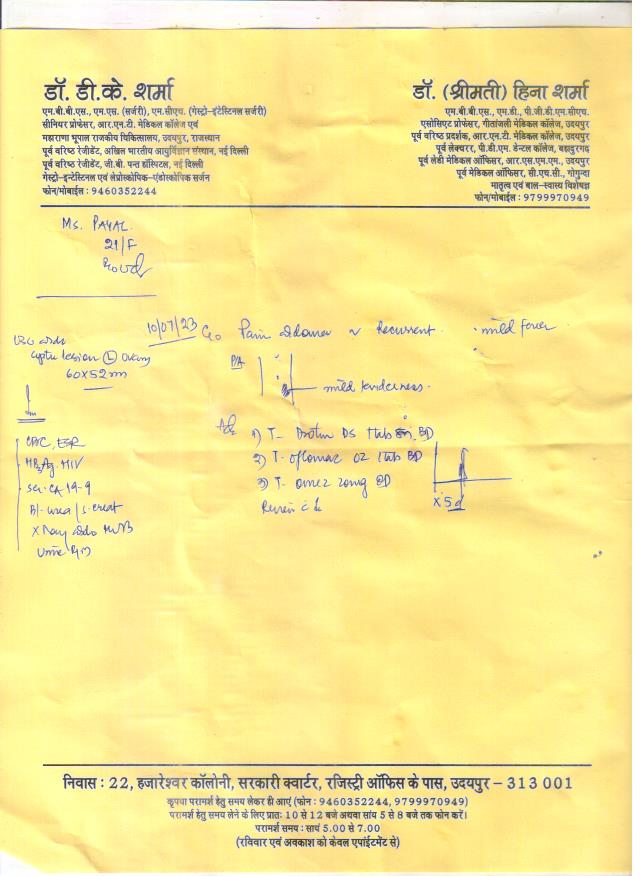 डॉ. डी.के. शर्मा
एम.बी.बी.एस., एम.एस. (सर्जरी), एम.सीएच. (गेस्ट्रो-इंटेस्टिनल सर्जरी)
सीनियर प्रोफेसर, आर.एन.टी. मेडिकल कॉलेज एवं
महाराणा भूपाल राजकीय चिकित्सालय, उदयपुर, राजस्थान
पूर्व वरिष्ठ रेजीडेंट, अखिल भारतीय आयुर्विज्ञान संस्थान, नई दिल्ली
पूर्व वरिष्ठ रेजीडेंट, जी.बी. पन्त हॉस्पिटल, नई दिल्ली
गेस्ट्रो-इन्टेस्टिनल एवं लेप्रोस्कोपिक-एंडोस्कोपिक सर्जन
फोन/मोबाईल : 9460352244
डॉ. (श्रीमती) हिना शर्मा
एम.बी.बी.एस., एम.डी., पी.जी.डी.एम.सीएच.
एसोसिएट प्रोफेसर, गीतांजली मेडिकल कॉलेज, उदयपुर
पूर्व वरिष्ठ प्रदर्शक, आर.एन.टी. मेडिकल कॉलेज, उदयपुर
पूर्व लेक्चरर, पी.डी.एम. डेन्टल कॉलेज, बहादुरगढ़
पूर्व लेडी मेडिकल ऑफिसर, आर.एस.एम.एम., उदयपुर
पूर्व मेडिकल ऑफिसर, सी.एच.सी., गोगुन्दा
मातृत्व एवं बाल-स्वास्थ्य विशेषज्ञ
फोन/मोबाईल : 9799970949
Ms. PAYAL
21/F
10/07/23 C/o Pain abdomen Recurrent mild fever
lesion (L) Ovary
60x52 mm
P/A
mild tenderness.
Adv 1) T- DS 1 tab BD
2) T- oflomac oz 1 tab BD
3) T- omez 20mg OD
x 5d
Review
CBC, ESR
HBsAg, HIV
Ser. CA 19-9
Bl. urea / S. creat
X Ray
Urine R/M
निवास : 22, हजारेश्वर कॉलोनी, सरकारी क्वार्टर, रजिस्ट्री ऑफिस के पास, उदयपुर – 313 001
कृपया परामर्श हेतु समय लेकर ही आएं (फोन : 9460352244, 9799970949)
परामर्श हेतु समय लेने के लिए प्रातः 10 से 12 बजे अथवा सांय 5 से 8 बजे तक फोन करें।
परामर्श समय : सायं 5.00 से 7.00
(रविवार एवं अवकाश को केवल एपांईटमेंट से)